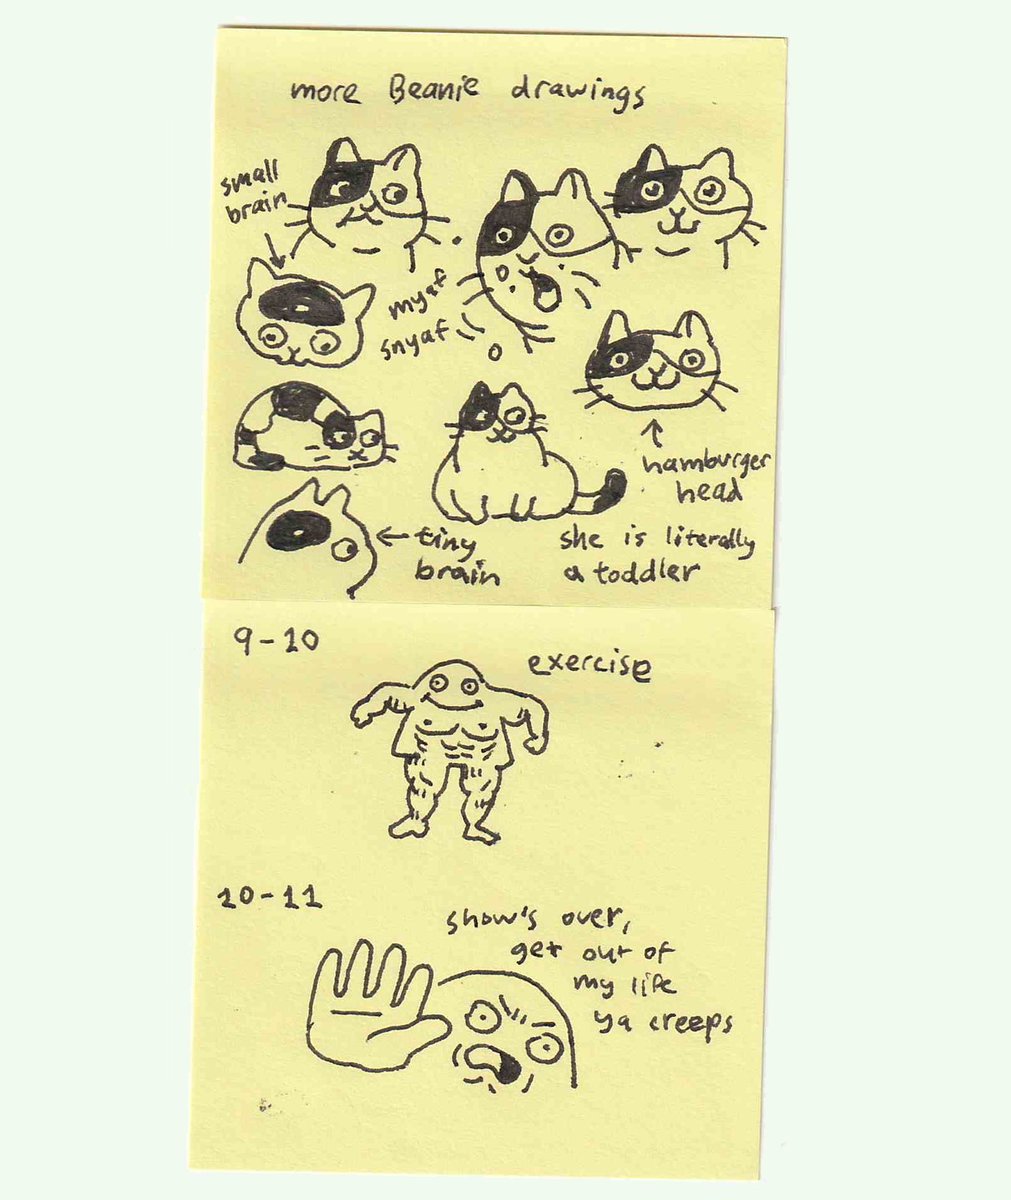 more Beanie drawings
small
brain
myaf
snyaf
hamburger
head
tiny
brain
she is literally
a toddler
9-10
exercise
10-11
show's over,
get out of
my life
ya creeps